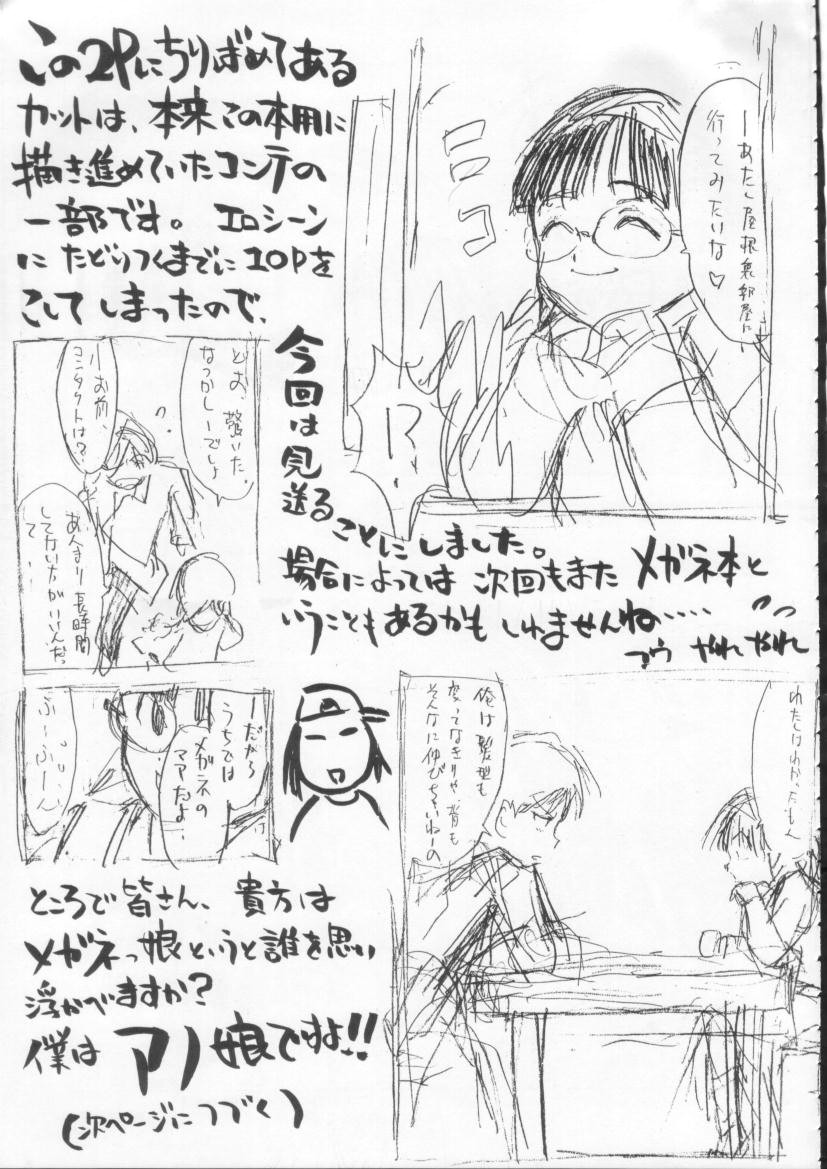 この2Pにちりばめてある
カットは、本来この本用に
描き進めていたコンテの
一部です。エロシーン
にたどりつくまでに10Pを
こしてしまったので、
今回は見送る
ことにしました。
場合によっては次回もまたメガネ本と
いうこともあるかもしれませんね……
フウ やれやれ
ーあたし屋根裏部屋に
行ってみたいな♡
ニコ
!?
とお、驚いた。
なつかしーでしょ
ーお前、
コンタクトは?
あんまり長時間
してない方がいいんだ。
て
ーだから
うちでは
メガネの
ママだよ。
ふーふーん
わたしはわかったもん
俺は髪型も
変ってなきりゃ背も
そんなに伸びちゃいねーの
ところで皆さん、貴方は
メガネっ娘というと誰を思い
浮かべますか?
僕はアノ娘ですよ!!
(次ページにつづく)